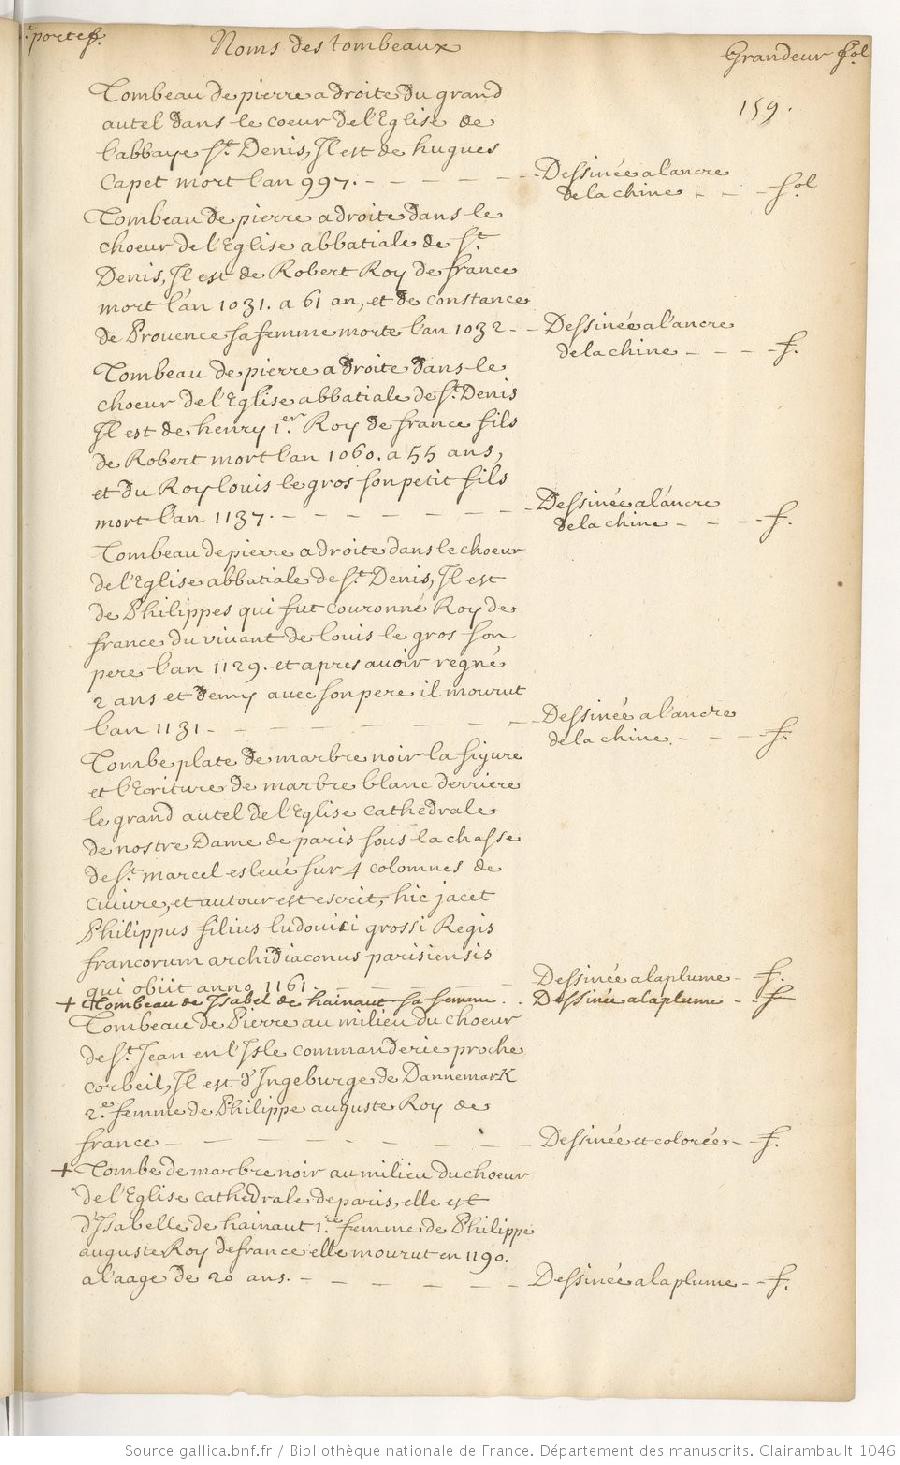 portef. Noms des tombeaux Grandeur fol
159.
Tombeau de pierre a droite du grand
autel dans le coeur de l'Eglise de
l'abbaye St. Denis, Il est de hugues
Capet mort l'an 997. - - - - - - Dessinée a l'ancre
de la chine - - - fol
Tombeau de pierre a droite dans le
choeur de l'Eglise abbatiale de St.
Denis, Il est de Robert Roy de france
mort l'an 1031. a 61 an, et de constance
de Provence sa femme morte l'an 1032 - - Dessinée a l'ancre
de la chine - - - - f.
Tombeau de pierre a droite dans le
choeur de l'Eglise abbatiale de St. Denis
Il est de henry 1er. Roy de france fils
de Robert mort l'an 1060. a 55 ans,
et du Roy louis le gros son petit fils
mort l'an 1137. - - - - - - - Dessinée a l'ancre
de la chine - - - f.
Tombeau de pierre a droite dans le choeur
de l'Eglise abbatiale de St. Denis, Il est
de Philippes qui fut couronné Roy de
france du vivant de louis le gros son
pere l'an 1129. et apres avoir regné
2 ans et demy avec son pere il mourut
l'an 1131 - - - - - - - - Dessinée a l'ancre
de la chine. - - - f.
Tombe plate de marbre noir la figure
et l'Ecriture de marbre blanc derriere
le grand autel de l'Eglise cathedrale
de nostre Dame de paris sous la chasse
de St. marcel eslevé sur 4 colomnes de
cuivre, et autour est escrit, hic jacet
Philippus filius ludovici grossi Regis
francorum archidiaconus parisiensis
qui obiit anno 1161. - - - - Dessinée a la plume - f.
+ Tombeau de Isabel de hainaut sa femme . . Dessinée a la plume - . f
Tombeau de Pierre au milieu du choeur
de St. Jean en l'Isle commanderie proche
corbeil, Il est d'Ingeburge de Dannemark
2.e femme de Philippe auguste Roy de
france - - - - - - - - Dessinée et colorée - f.
+ Tombe de marbre noir au milieu du choeur
de l'Eglise cathedrale de paris, elle est
d'Isabelle de hainaut 1.re femme de Philippe
auguste Roy de france elle mourut en 1190.
a l'aage de 20 ans. - - - - - - Dessinée a la plume - - f.
Source gallica.bnf.fr / Bibliothèque nationale de France. Département des manuscrits. Clairambault 1046